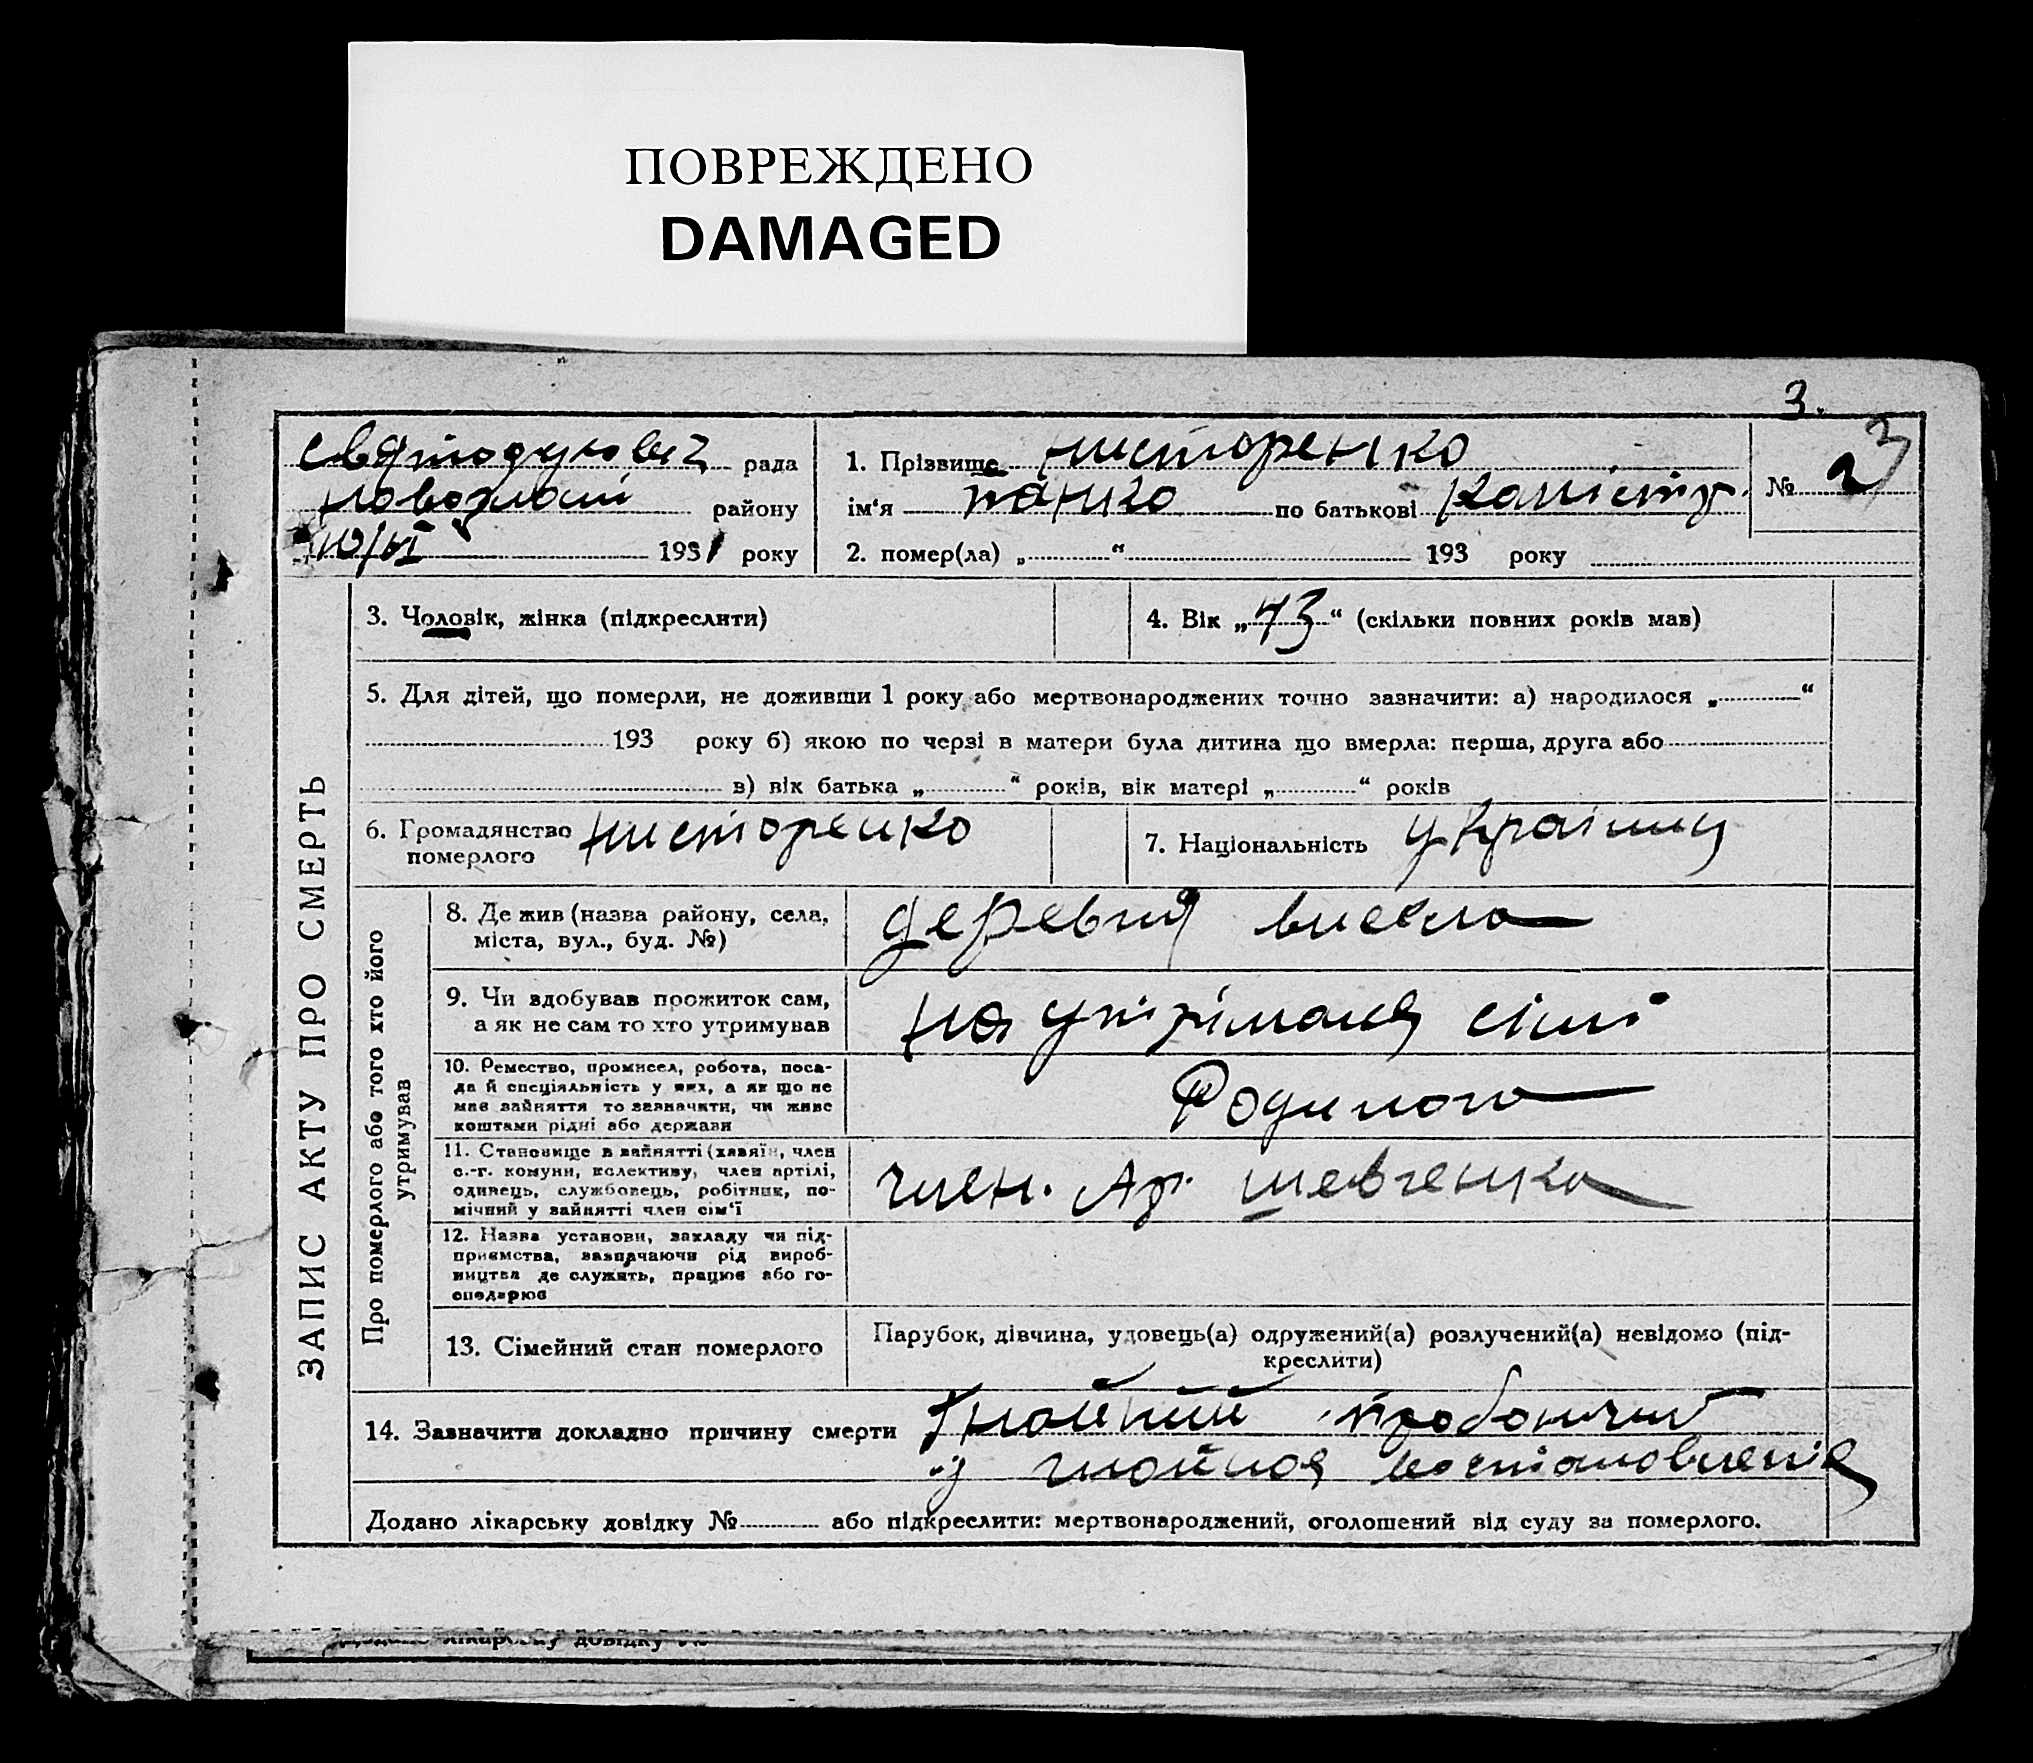 ПОВРЕЖДЕНО
DAMAGED
3.
рада
району
193 року
1. Прізвище Нисторенко
ім‘я панко по батькові
2. помер(ла) „ “ 193 року
№ 23
ЗАПИС АКТУ ПРО СМЕРТЬ
3. Чоловік, жінка (підкреслити)
4. Вік „43“ (скільки повних років мав)
5. Для дітей, що померли, не доживши 1 року або мертвонароджених точно зазначити: а) народилося „ “
193 року б) якою по черзі в матери була дитина що вмерла: перша, друга або
в) вік батька „ “ років, вік матері „ “ років
6. Громадянство Нисторенко
померлого
7. Національність
Про померлого або того хто його
утримував
8. Де жив (назва району, села,
міста, вул., буд. №)
деревня
9. Чи здобував прожиток сам,
а як не сам то хто утримував
на утріманя сімі
10. Ремество, промисел, робота, поса-
да й спеціяльність у них, а як що не
має зайняття то зазначити, чи живе
коштами рідні або держави
Родиною
11. Становище в зайнятті (хазяїн, член
с.-г. комуни, колективу, член артілі,
одинець, службовець, робітник, по-
мічний у зайнятті член сім‘ї
член. Ар. шевченка
12. Назва установи, закладу чи під-
приємства, зазначаючи рід вироб-
ництва де служить, працює або го-
сподарює
13. Сімейний стан померлого
Парубок, дівчина, удовець(а) одружений(а) розлучений(а) невідомо (під-
креслити)
14. Зазначити докладно причину смерти Гнойний
гнойноя
Додано лікарську довідку № або підкреслити: мертвонароджений, оголошений від суду за померлого.